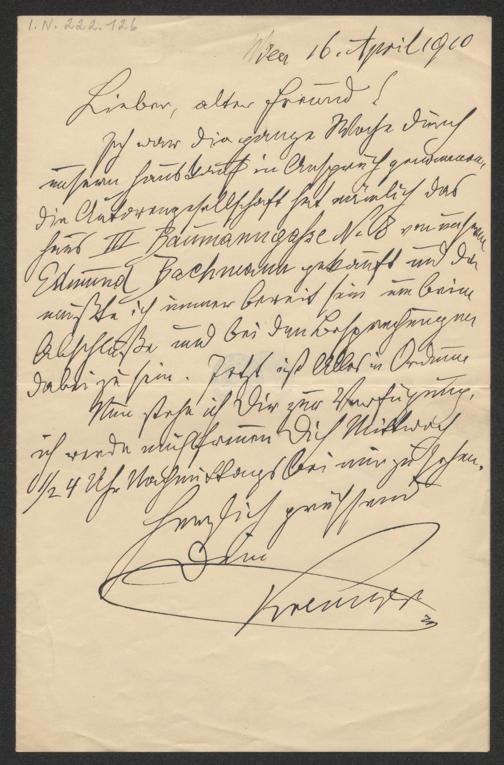 I.N. 222.126
Wien 16. April 1910
Lieber, alter Freund!
Ich war die ganze Woche durch
unsern Hauskauf in Anspruch genommen,
die Autorengesellschaft hat nämlich das
Haus III Baumanngasse No 8 von
Edmund Bachmann gekauft und da
mußte ich immer bereit sein um beim
Abschluße und bei den Besprechungen
dabei zu sein. Jetzt ist Alles in Ordnung
Nun stehe ich Dir zur Verfügung,
ich werde mich freuen Dich Mittwoch
1/2 4 Uhr Nachmittags bei mir zu sehen.
Herzlich grüssend
Dein
Kremser